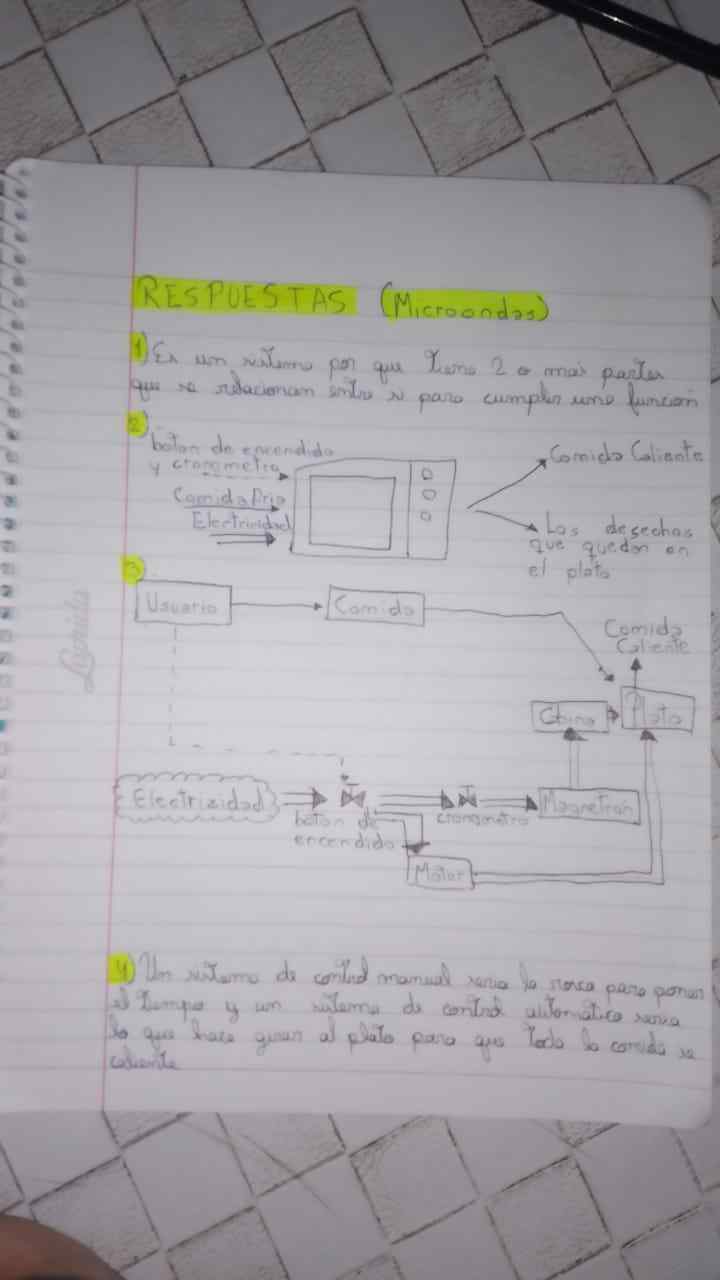 RESPUESTAS (Microondas)
1) Es un sistema por que tiene 2 o mas partes
que se relacionan entre si para cumplir una funcion
2)
boton de encendido
y cronometro
Comida fria
Electricidad
Comida Caliente
Los desechos
que quedan en
el plato
3)
Usuario
Comida
Comida
Caliente
Plato
Electrizidad
boton de
encendido
cronometro
Magnetron
Motor
4) Un sistema de control manual seria la rosca para poner
el tiempo y un sistema de control automatico seria
lo que hace girar al plato para que toda la comida se
caliente